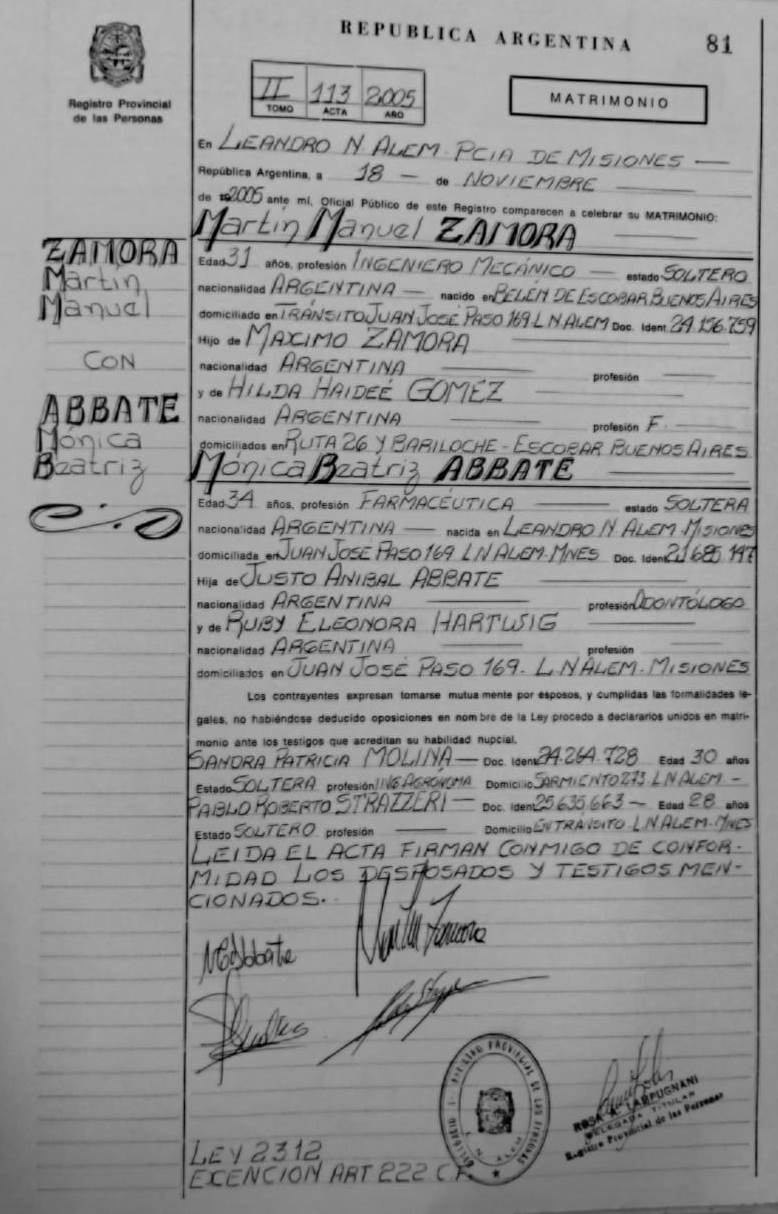 REPUBLICA ARGENTINA 81
Registro Provincial
de las Personas
II 113 2005
TOMO ACTA AÑO
MATRIMONIO
En LEANDRO N ALEM. PCIA DE MISIONES —
República Argentina, a 18 — de NOVIEMBRE
de 2005 ante mí, Oficial Público de este Registro comparecen a celebrar su MATRIMONIO:
Martín Manuel ZAMORA
ZAMORA
Martín
Manuel
CON
ABBATE
Mónica
Beatriz
Edad 31 años, profesión INGENIERO MECÁNICO — estado SOLTERO
nacionalidad ARGENTINA — nacido en BELÉN DE ESCOBAR BUENOS AIRES
domiciliado en TRÁNSITO JUAN JOSÉ PASO 169 L N ALEM Doc. Ident. 24.156.759
Hijo de MAXIMO ZAMORA
nacionalidad ARGENTINA profesión
y de HILDA HAIDEÉ GOMEZ
nacionalidad ARGENTINA profesión F.
domiciliados en RUTA 26 Y BARILOCHE - ESCOBAR BUENOS AIRES
Mónica Beatriz ABBATE
Edad 34 años, profesión FARMACÉUTICA estado SOLTERA
nacionalidad ARGENTINA — nacida en LEANDRO N ALEM. MISIONES
domiciliada en JUAN JOSÉ PASO 169 L N ALEM. MNES Doc. Ident. 21.685.197
Hija de JUSTO ANIBAL ABBATE
nacionalidad ARGENTINA profesión ODONTÓLOGO
y de RUBY ELEONORA HARTWIG
nacionalidad ARGENTINA profesión
domiciliados en JUAN JOSÉ PASO 169. L N ALEM. MISIONES
Los contrayentes expresan tomarse mutuamente por esposos, y cumplidas las formalidades le-
gales, no habiéndose deducido oposiciones en nombre de la Ley procedo a declararlos unidos en matri-
monio ante los testigos que acreditan su habilidad nupcial.
SANDRA PATRICIA MOLINA — Doc. Ident. 24.264.728 Edad 30 años
Estado SOLTERA profesión ING AGRÓNOMA Domicilio SARMIENTO 273 L N ALEM -
PABLO ROBERTO STRAZZERI — Doc. Ident. 25.635.663 — Edad 28 años
Estado SOLTERO profesión — Domicilio EN TRÁNSITO L N ALEM. MNES
LEIDA EL ACTA FIRMAN CONMIGO DE CONFOR-
MIDAD LOS DESPOSADOS Y TESTIGOS MEN-
CIONADOS.
MBAbbate Martín Zamora
REGISTRO PROVINCIAL DE LAS PERSONAS
L. N. ALEM
ROSA
DELEGADA TITULAR
Registro Provincial de las Personas
LEY 2312
EXENCION ART 222 C.F.